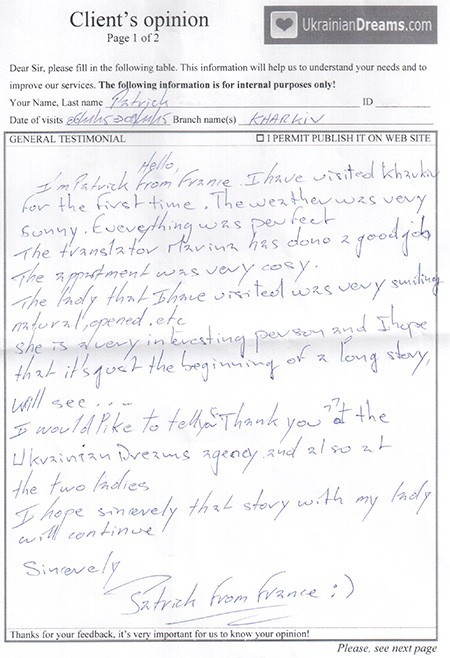 Client's opinion
Page 1 of 2
UkrainianDreams.com
Dear Sir, please fill in the following table. This information will help us to understand your needs and to
improve our services. The following information is for internal purposes only!
Your Name, Last name Patrick ID
Date of visits Branch name(s) KHARKIV
GENERAL TESTIMONIAL ☐ I PERMIT PUBLISH IT ON WEB SITE
Hello,
I'm Patrick from France. I have visited Kharkiv
for the first time. The weather was very
sunny. Everything was perfect
The translator Marina has done a good job
The appartment was very cosy.
The lady that I have visited was very smiling
natural, opened, etc
she is a very interesting person and I hope
that it's just the beginning of a long story,
will see ....
I would like to tell "Thank you" at the
Ukrainian Dreams agency and also at
the two ladies
I hope sincerely that story with my lady
will continue
Sincerely
Patrick from France :)
Thanks for your feedback, it's very important for us to know your opinion!
Please, see next page